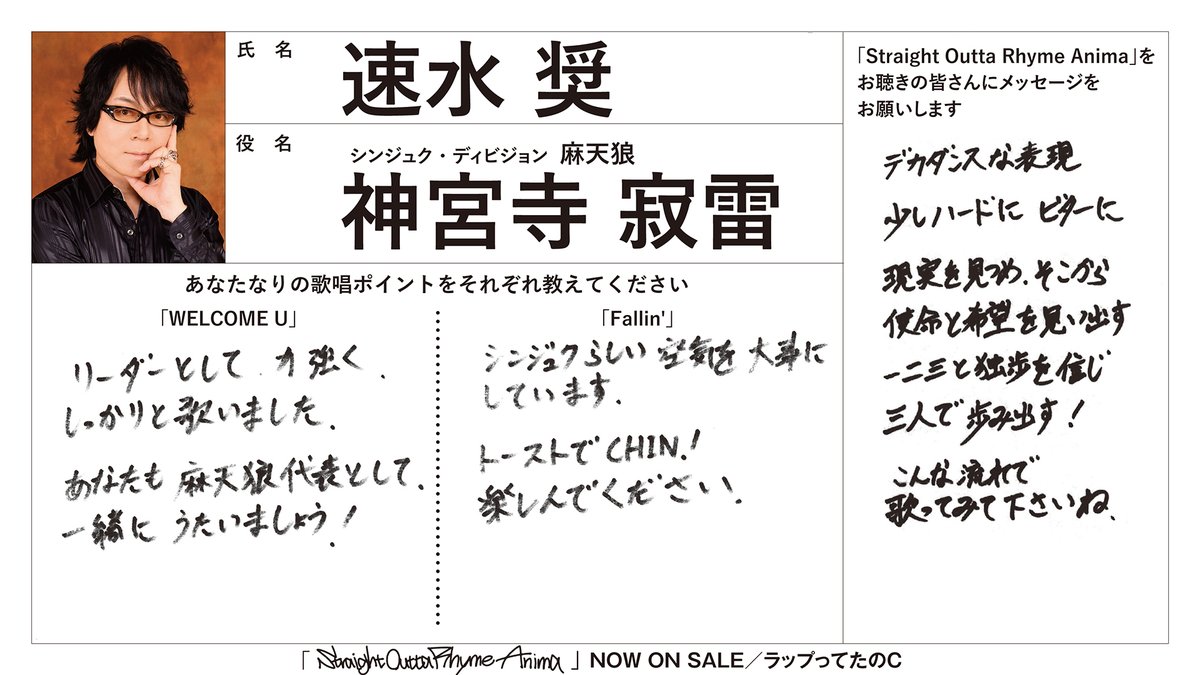 氏 名
速水 奨
役 名
シンジュク・ディビジョン 麻天狼
神宮寺 寂雷
あなたなりの歌唱ポイントをそれぞれ教えてください
「WELCOME U」
リーダーとして、力強く、
しっかりと歌いました。
あなたも 麻天狼代表として、
一緒に うたいましょう!
「Fallin'」
シンジュクらしい 空気を 大事に
しています。
トーストでCHIN!
楽しんでください。
「Straight Outta Rhyme Anima」を
お聴きの皆さんにメッセージを
お願いします
デカダンスな表現
少しハードに ビターに
現実を見つめ、そこから
使命と希望を見い出す
一二三と独歩を信じ
三人で歩み出す!
こんな流れで
歌ってみて下さいね。
「Straight Outta Rhyme Anima」NOW ON SALE／ラップってたのC